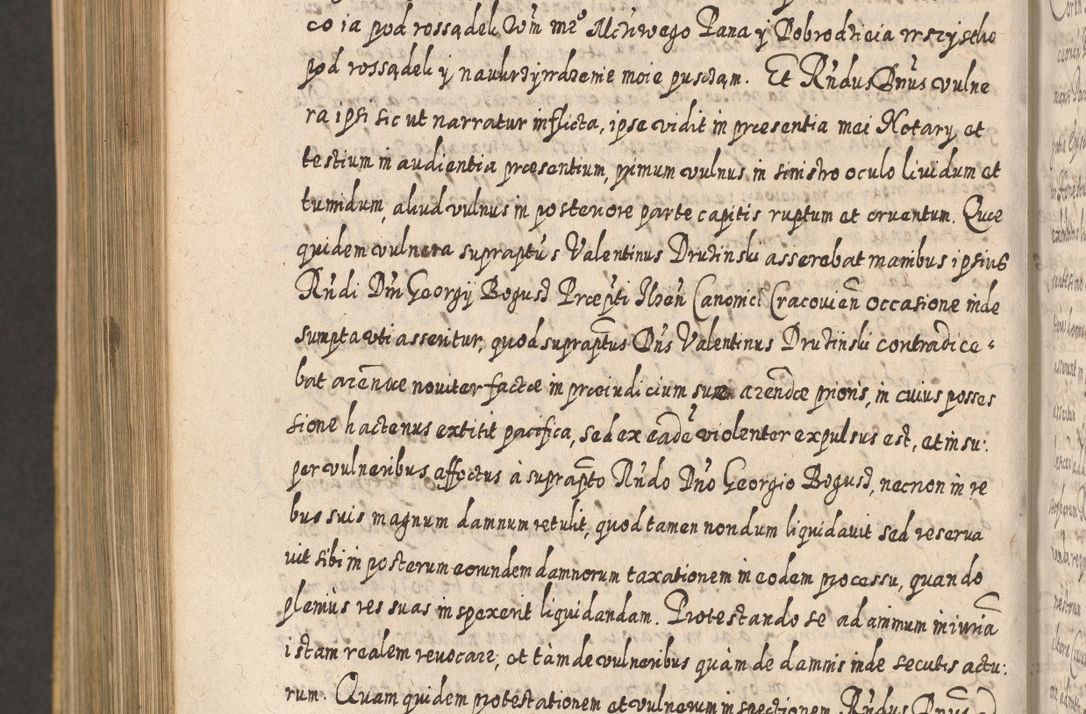 co ia pod rossądek Wm mego Mściwego Pana y Dobrodzieia wszystko
pod rossądek y nauktzywdzenie moie puszczam. Et Rndus Dnus vulne
ra ipsi sic ut narratur inflicta, ipse vidit in præsentia mei Notary et
testium in audientia præsentium, primum vulnus in sinistro oculo liuidum et
tumidum, aliud vulnus in posteriore parte capitis ruptum et cruentum. Quæ
quidem vulnera supraptus Valentinus Druzinski asserebat manibus ipsius
Rndi Dni Georgij Bogusz Præpti Ilzen Canonici Cracouien occasione inde
sumpta uti asseritur, quod supraptus Dnus Valentinus Druzinski contradice-
bat arendæ nouiter factæ in præiudicium suæ arendæ prioris, in cuius posses
sione hactenus extitit pacifica, sed ex eade violenter expulsus est, et insu:
per vulneribus affectus à suprapto Rndo Dno Georgio Bogusz, necnon in re
bus suis magnum damnum retulit, quod tamen nondum liquidauit sed reserua
uit sibi in posterum eorundem damnorum taxationem in eodem processu, quando
plenius res suas inspexerit liquidandam. Protestando se ad animum iniuria
istam realem reuocare, et tàm de vulneribus quàm de damnis inde secutis actu:
rum. Quam quidem protestationem et vulnerum inspectionem Rndus Dnus